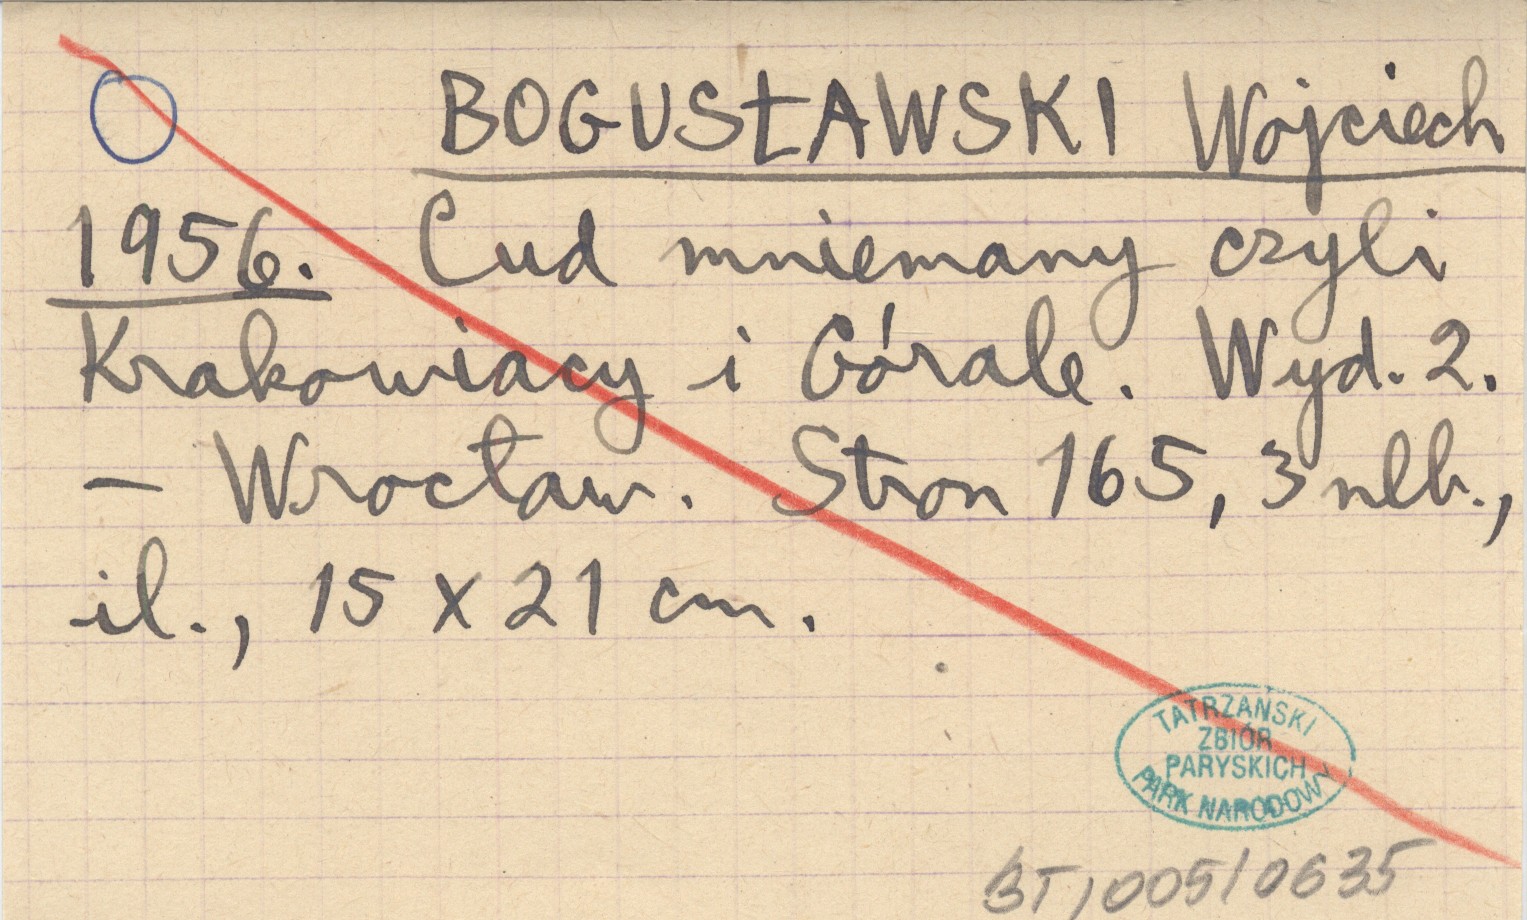 BOGUSŁAWSKI Wojciech
1956. Cud mniemany czyli
Krakowiacy i Górale. Wyd. 2.
— Wrocław. Stron 165, 3 nlb.,
il., 15 x 21 cm.
TATRZAŃSKI
ZBIÓR
PARYSKICH
PARK NARODOWY
BT/005/0635